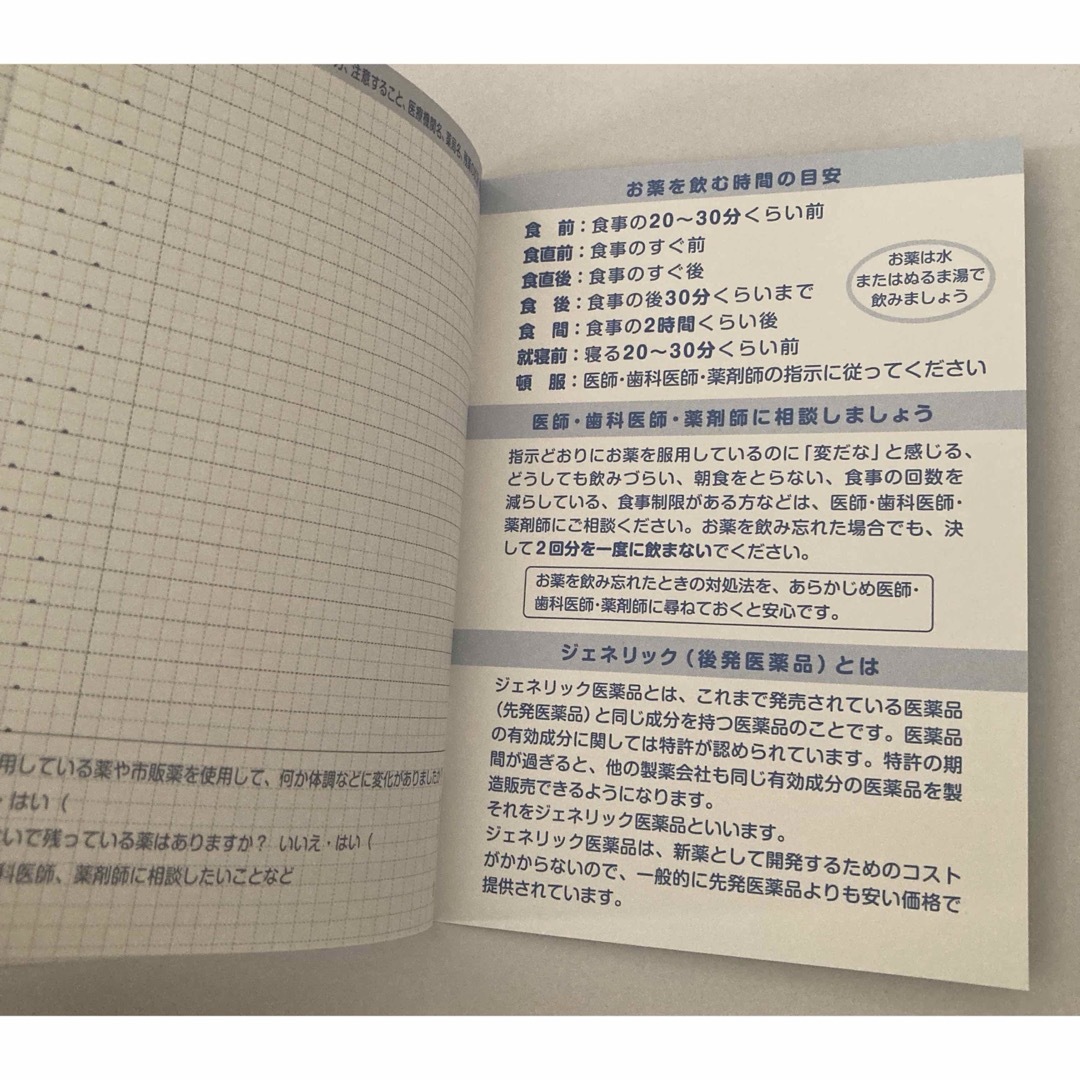 注意すること、医療機関名、薬局名、
用している薬や市販薬を使用して、何か体調などに変化がありました
・はい（
いで残っている薬はありますか？ いいえ・はい（
科医師、薬剤師に相談したいことなど
お薬を飲む時間の目安
食　前：食事の20～30分くらい前
食直前：食事のすぐ前
食直後：食事のすぐ後
食　後：食事の後30分くらいまで
食　間：食事の2時間くらい後
就寝前：寝る20～30分くらい前
頓　服：医師・歯科医師・薬剤師の指示に従ってください
お薬は水
またはぬるま湯で
飲みましょう
医師・歯科医師・薬剤師に相談しましょう
指示どおりにお薬を服用しているのに「変だな」と感じる、
どうしても飲みづらい、朝食をとらない、食事の回数を
減らしている、食事制限がある方などは、医師・歯科医師・
薬剤師にご相談ください。お薬を飲み忘れた場合でも、決
して2回分を一度に飲まないでください。
お薬を飲み忘れたときの対処法を、あらかじめ医師・
歯科医師・薬剤師に尋ねておくと安心です。
ジェネリック（後発医薬品）とは
ジェネリック医薬品とは、これまで発売されている医薬品
（先発医薬品）と同じ成分を持つ医薬品のことです。医薬品
の有効成分に関しては特許が認められています。特許の期
間が過ぎると、他の製薬会社も同じ有効成分の医薬品を製
造販売できるようになります。
それをジェネリック医薬品といいます。
ジェネリック医薬品は、新薬として開発するためのコスト
がかからないので、一般的に先発医薬品よりも安い価格で
提供されています。